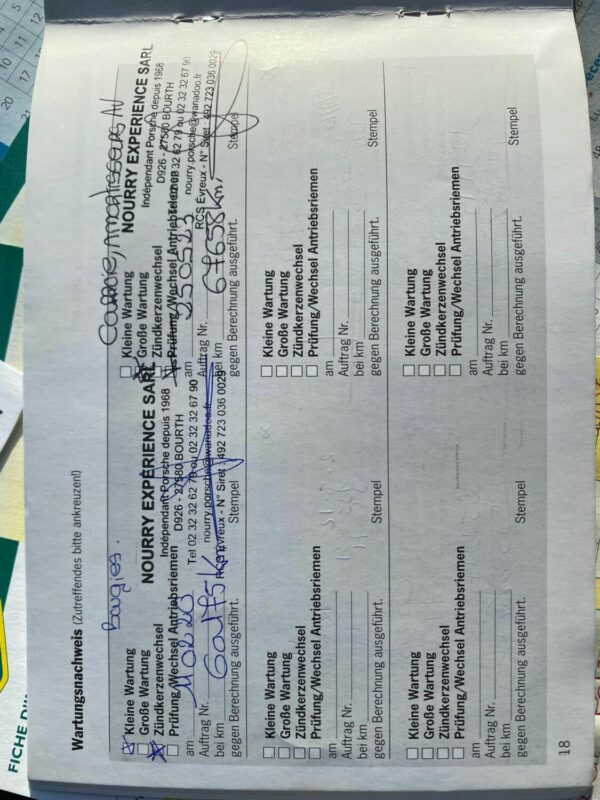 Wartungsnachweis (Zutreffendes bitte ankreuzen!)
Bougies.
Kleine Wartung
Große Wartung
Zündkerzenwechsel
Prüfung/Wechsel Antriebsriemen
NOURRY EXPERIENCE SARL
Indépendant Porsche depuis 1968
D926 - 27580 BOURTH
Tel 02 32 32 62 79 ou 02 32 32 67 90
nourry.porsche@wanadoo.fr
RCS Evreux - N° Siret : 492 723 036 0029
am 110220
Auftrag Nr.
bei km
gegen Berechnung ausgeführt.
Stempel
Courroie, amortisseurs AV
Kleine Wartung
Große Wartung
Zündkerzenwechsel
Prüfung/Wechsel Antriebsriemen
NOURRY EXPERIENCE SARL
Indépendant Porsche depuis 1968
D926 - 27580 BOURTH
Tel 02 32 32 62 79 ou 02 32 32 67 90
nourry.porsche@wanadoo.fr
RCS Evreux - N° Siret : 492 723 036 0029
am 250523
Auftrag Nr.
bei km 67658 km
gegen Berechnung ausgeführt.
Stempel
Kleine Wartung
Große Wartung
Zündkerzenwechsel
Prüfung/Wechsel Antriebsriemen
am
Auftrag Nr.
bei km
gegen Berechnung ausgeführt.
Stempel
Kleine Wartung
Große Wartung
Zündkerzenwechsel
Prüfung/Wechsel Antriebsriemen
am
Auftrag Nr.
bei km
gegen Berechnung ausgeführt.
Stempel
Kleine Wartung
Große Wartung
Zündkerzenwechsel
Prüfung/Wechsel Antriebsriemen
am
Auftrag Nr.
bei km
gegen Berechnung ausgeführt.
Stempel
Kleine Wartung
Große Wartung
Zündkerzenwechsel
Prüfung/Wechsel Antriebsriemen
am
Auftrag Nr.
bei km
gegen Berechnung ausgeführt.
Stempel
18
FICHE